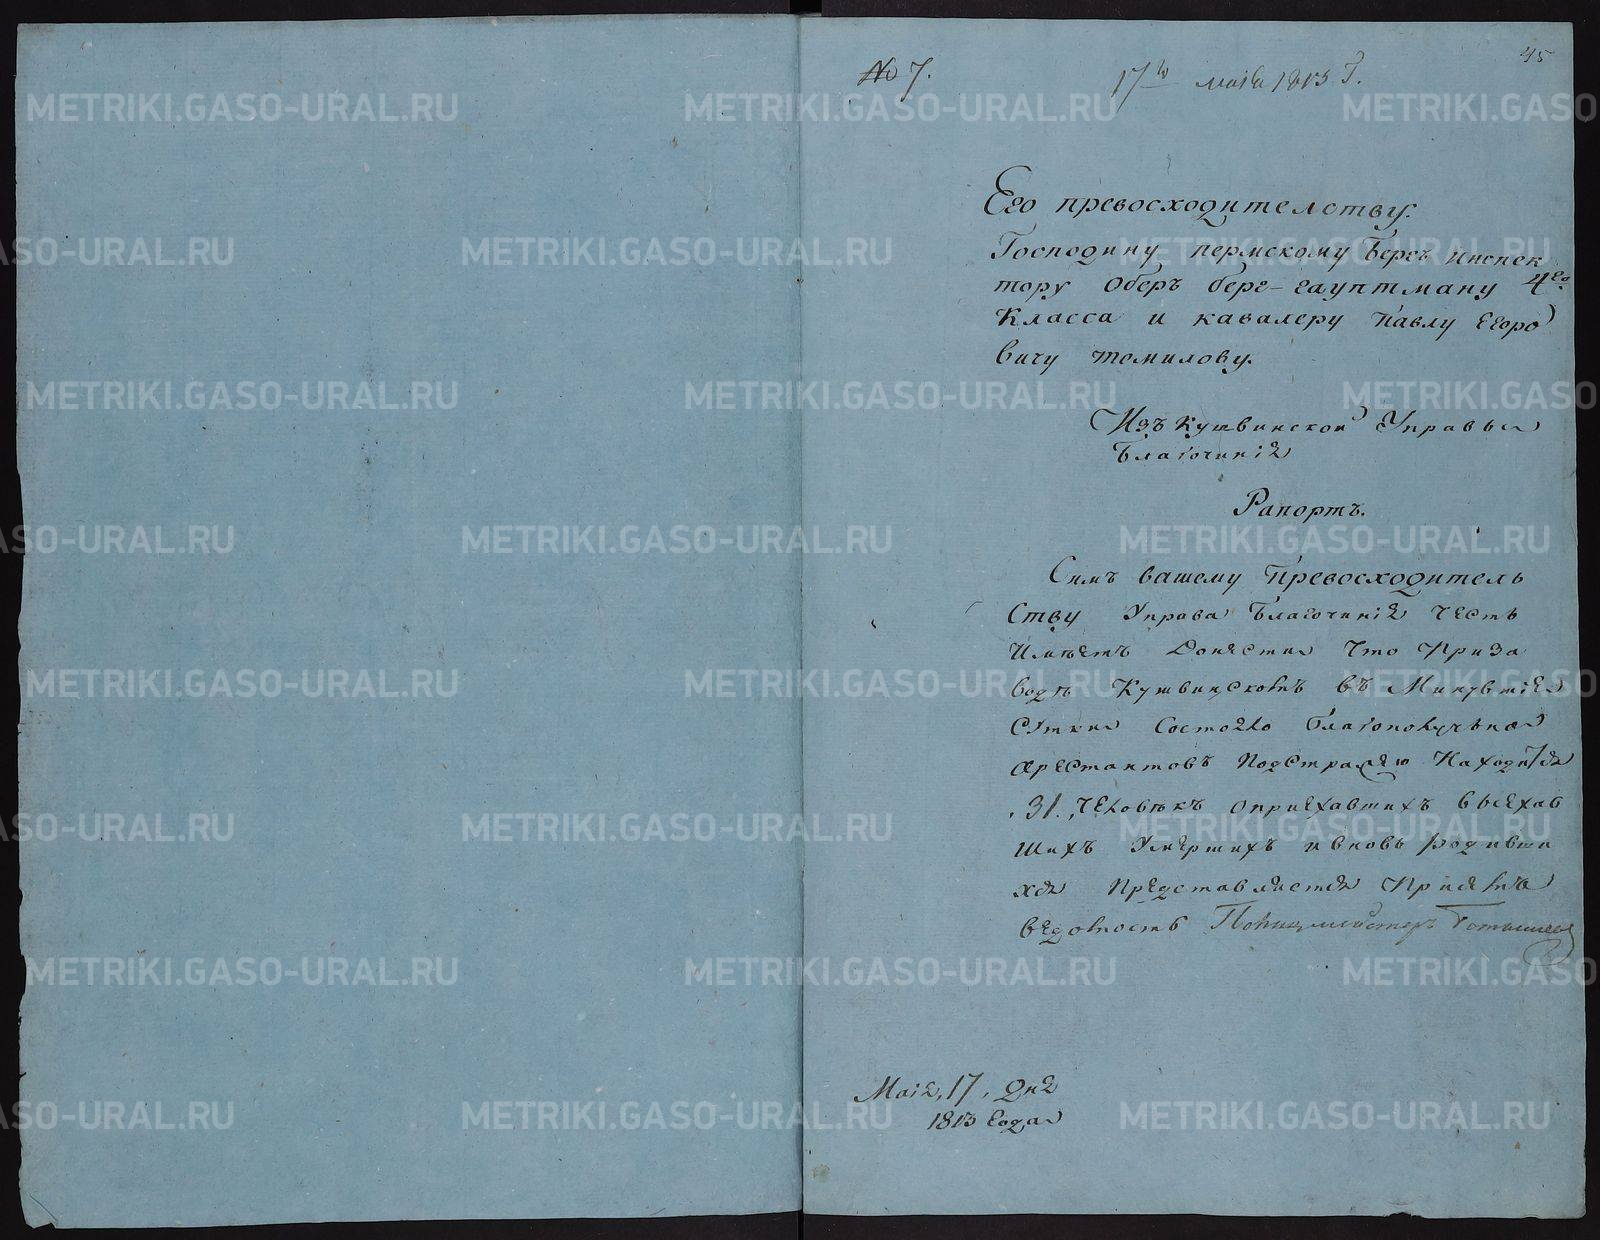 45
№ 7.
17го маія 1813 г.
Его превосходителству.
Господину пермскому Бергъ инспек
тору Оберъ берг-гауптману 4го
Класса и кавалеру Павлу Егоро
вичу томилову.
Изъ Кушвинской Управы
Благочинія
Рапортъ.
Симъ вашему Превосходитель
Ству Управа Благочинія Честь
Имѣетъ Донести Что Приза
водѣ Кушвинскомъ въ Минувшіе
Сутки Состояло Благополучьно
арестантовъ Подстражею Находитъся
,31., Человѣкъ оприехавшихъ выехав
шихъ Умершихъ ивновь родивши
хся Представляется Присемъ
ведомость Полицмейстеръ
Маія, 17, дня
1813 года
METRIKI.GASO-URAL.RU